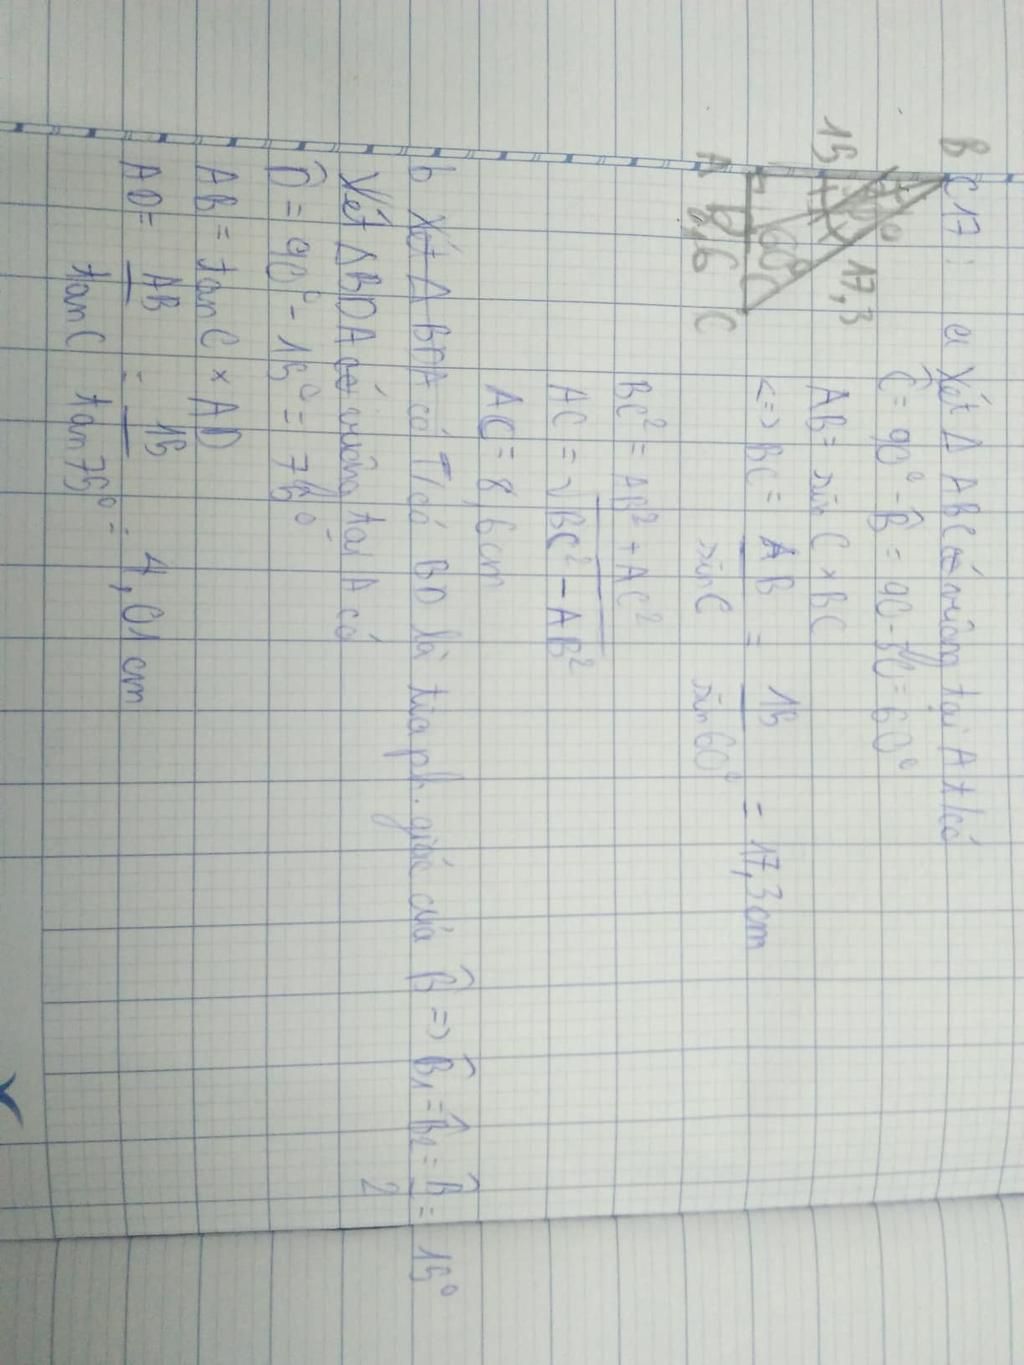 C17: a Xét Δ ABC có vuông tại A ta có
Ĉ = 90° - B̂ = 90 - 30 = 60°
AB = sin C × BC
<=> BC = AB / sin C = 15 / sin 60° = 17,3 cm
BC² = AB² + AC²
AC = √BC² - AB²
AC = 8,6 cm
B
15
17,3
60°
A D C
8,6
b Xét Δ BDA có T/có BD là tia ph. giác của B̂ => B̂₁ = B̂₂ = B̂ / 2 = 15°
Xét ΔBDA có vuông tại A có
D̂ = 90° - 15° = 75°
AB = tan C × AD
AD = AB / tan C = 15 / tan 75° = 4,01 cm